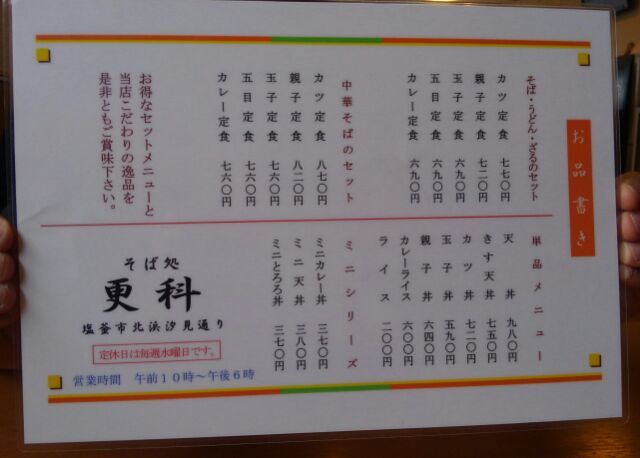 お品書き
そば・うどん・ざるのセット
カツ定食 七七〇円
親子定食 七二〇円
玉子定食 六九〇円
五目定食 六九〇円
カレー定食 六九〇円
中華そばのセット
カツ定食 八七〇円
親子定食 八二〇円
玉子定食 七六〇円
五目定食 七六〇円
カレー定食 七六〇円
お得なセットメニューと
当店こだわりの逸品を
是非ともご賞味下さい。
単品メニュー
天丼 九八〇円
きす天丼 七五〇円
カツ丼 七二〇円
玉子丼 五九〇円
親子丼 六四〇円
カレーライス 六〇〇円
ライス 二〇〇円
ミニシリーズ
ミニカレー丼 三七〇円
ミニ天丼 三八〇円
ミニとろろ丼 三七〇円
そば処
更科
塩釜市北浜汐見通り
定休日は毎週水曜日です。
営業時間 午前10時～午後6時